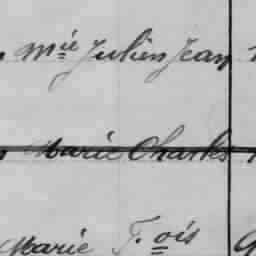 Mie Julien Jean
Marie Charles
Marie F.ois